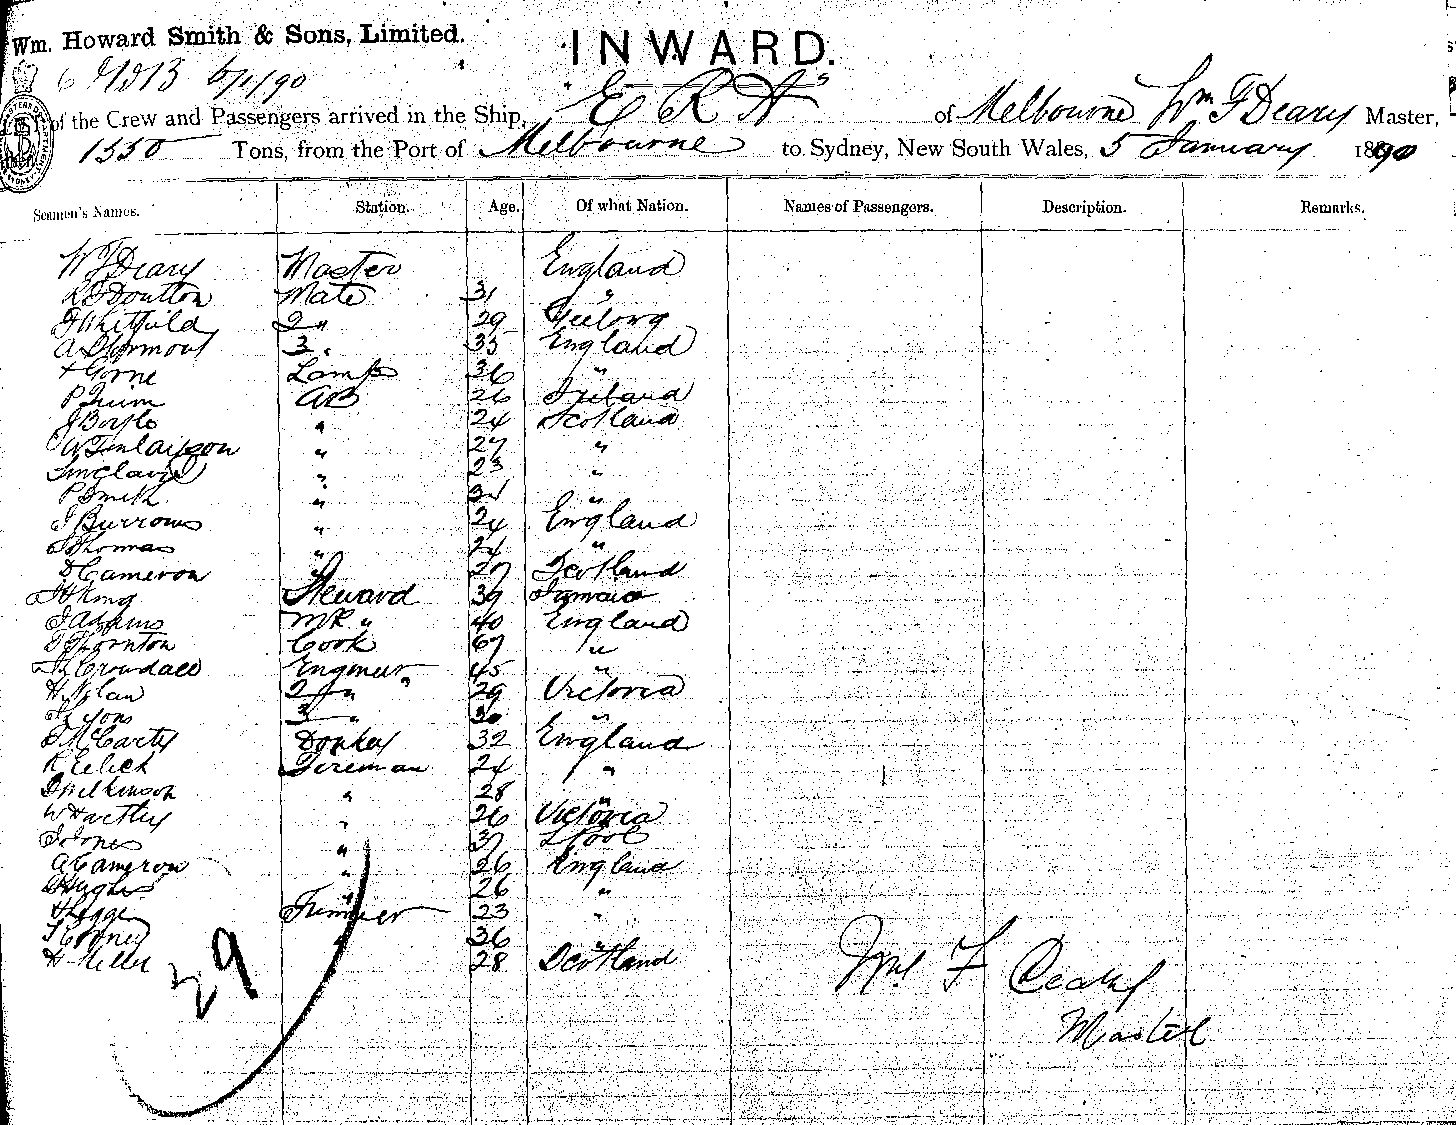 Wm. Howard Smith & Sons, Limited.
INWARD.
6/1/90
of the Crew and Passengers arrived in the Ship, "ERA" of Melbourne Wm F Deary Master,
1550 Tons, from the Port of Melbourne to Sydney, New South Wales, 5 January 1890
Seamen's Names. Station. Age. Of what Nation. Names of Passengers. Description. Remarks.
W F Deary Master England
Doutton Mate 31 "
J Whitfield 2 " 29 Geelong
A 3 " 35 England
Horne Lamps 36 "
P Quinn AB 26 Ireland
J Boyle " 24 Scotland
W Finlayson " 27 "
Sinclair " 23 "
P Smith " 31 "
J Burrows " 24 England
Thomas " 24 "
D Cameron " 27 Scotland
King Steward 39 Jamaica
J Adams " 40 England
Thornton Cook 67 "
Crowdace Engineer 45 "
H Nolan 2 " " 29 Victoria
Lyons 3 " 30 "
J McCarty Donkey 32 England
R Fireman 24 "
J Wilkinson " 28 "
W Hartley " 26 Victoria
J Jones " 37 L'Pool
A Cameron " 26 England
Hughes " 26 "
Trimmer 23 "
" 36 "
H Miller 28 Scotland
29
Wm F Deary
Master